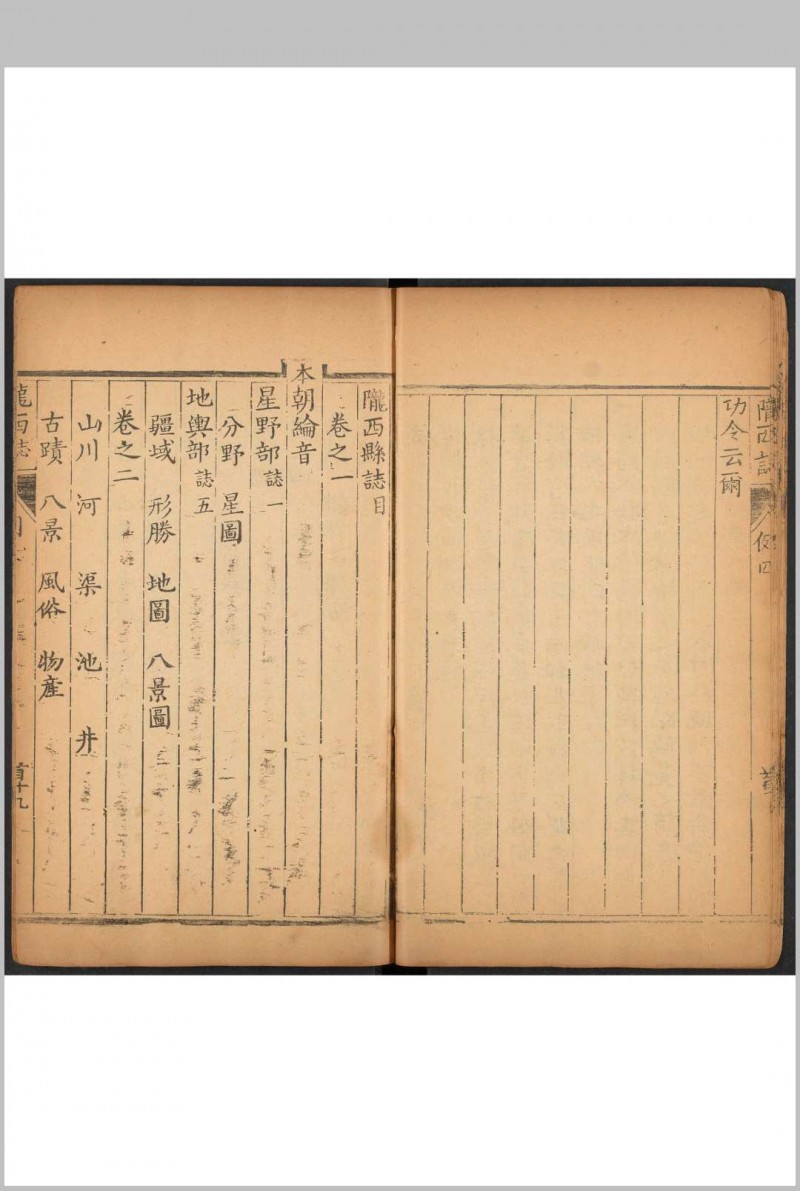 隴西誌
例四
功令云爾
隴西縣誌目
卷之一
本朝綸音
星野部誌一
分野 星圖
地輿部誌五
疆域 形勝 地圖 八景圖
卷之二
山川 河 渠 池 井
古蹟 八景 風俗 物產
隴西誌
目
首十九